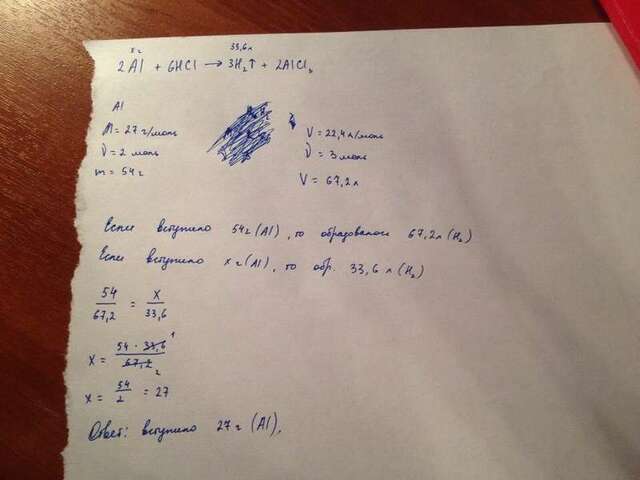 х г 33,6 л
2Al + 6HCl → 3H₂↑ + 2AlCl₃
Al
M = 27 г/моль V = 22,4 л/моль
ν = 2 моль ν = 3 моль
m = 54 г V = 67,2 л
Если вступило 54 г (Al), то образовалось 67,2 л (H₂)
Если вступило х г (Al), то обр. 33,6 л (H₂)
54/67,2 = х/33,6
х = 54 · 33,6 1/67,2 2
х = 54/2 = 27
Ответ: вступило 27 г (Al).